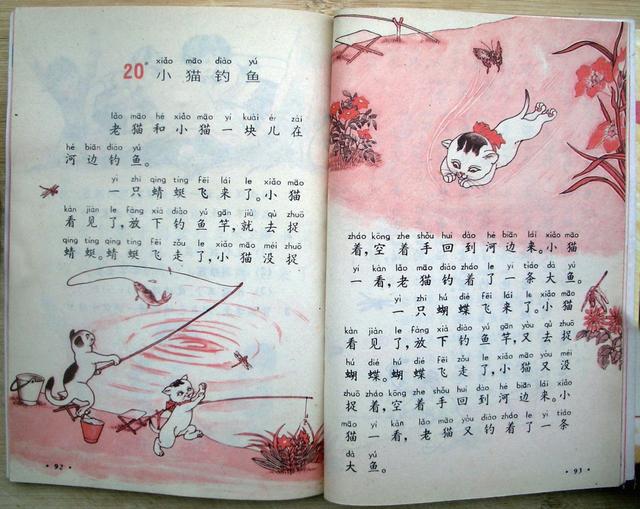 xiǎo māo diào yú
20° 小猫钓鱼
lǎo māo hé xiǎo māo yí kuài ér zài
老猫和小猫一块儿在
hé biān diào yú
河边钓鱼。
yì zhī qīng tíng fēi lái le xiǎo māo
一只蜻蜓飞来了。小猫
kàn jiàn le fàng xià diào yú gān jiù qù zhuō
看见了,放下钓鱼竿,就去捉
qīng tíng qīng tíng fēi zǒu le xiǎo māo méi zhuō
蜻蜓。蜻蜓飞走了,小猫没捉
·92·
zháo kōng zhe shǒu huí dào hé biān lái xiǎo māo
着,空着手回到河边来。小猫
yí kàn lǎo māo diào zháo le yì tiáo dà yú
一看,老猫钓着了一条大鱼。
yì zhī hú dié fēi lái le xiǎo māo
一只蝴蝶飞来了。小猫
kàn jiàn le fàng xià diào yú gān yòu qù zhuō
看见了,放下钓鱼竿,又去捉
hú dié hú dié fēi zǒu le xiǎo māo yòu méi
蝴蝶。蝴蝶飞走了,小猫又没
zhuō zháo kōng zhe shǒu huí dào hé biān lái xiǎo
捉着,空着手回到河边来。小
māo yí kàn lǎo māo yòu diào zháo le yì tiáo
猫一看,老猫又钓着了一条
dà yú
大鱼。
·93·